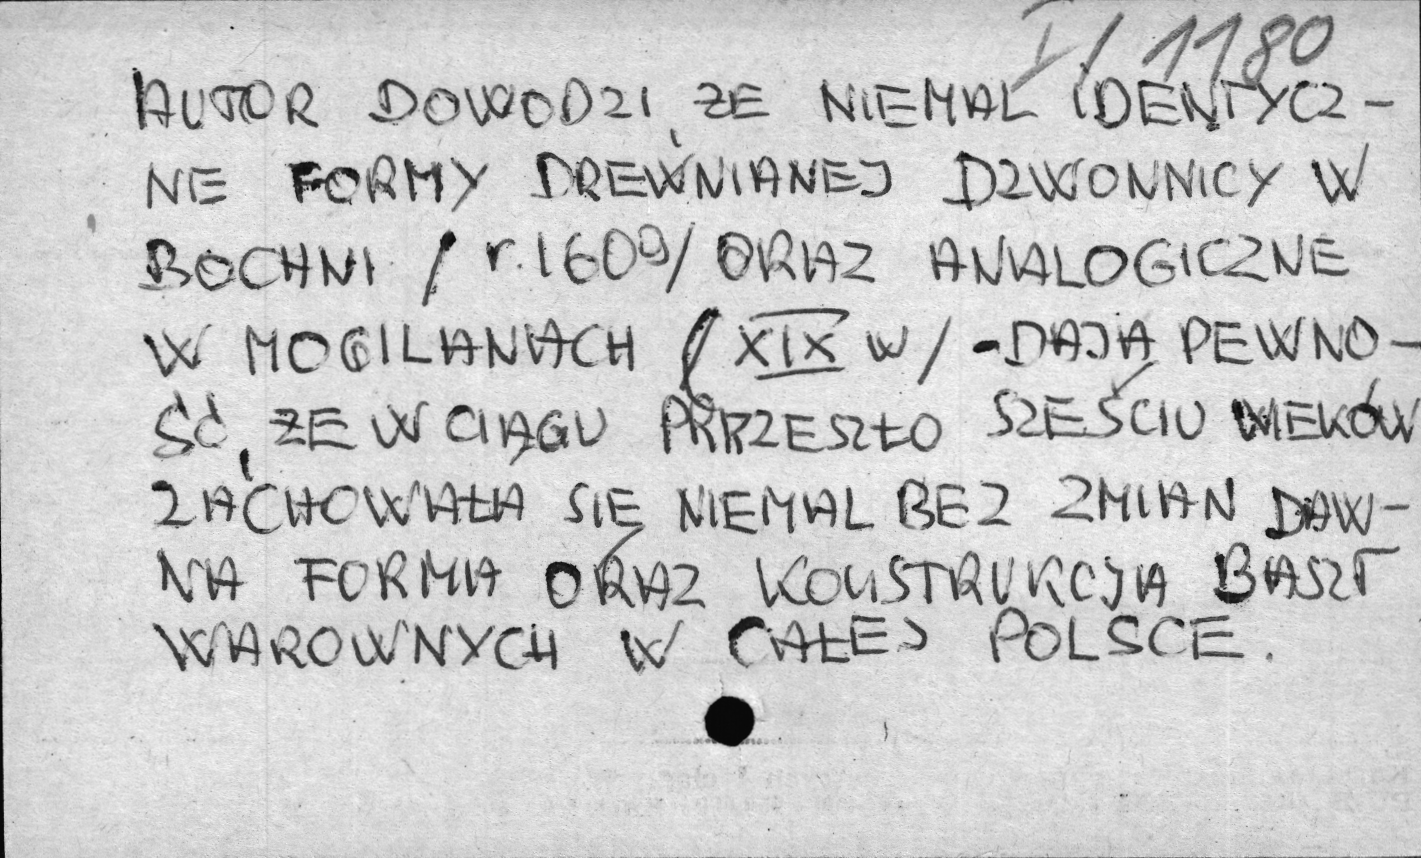 I/1180
AUTOR DOWODZI, ŻE NIEMAL IDENTYCZ-
NE FORMY DREWNIANEJ DZWONNICY W
BOCHNI / r. 1609/ ORAZ ANALOGICZNE
W MOGILANACH / XIX w/ - DAJĄ PEWNO-
ŚĆ, ŻE W CIĄGU PRZESZŁO SZEŚCIU WIEKÓW
ZACHOWAŁA SIĘ NIEMAL BEZ ZMIAN DAW-
NA FORMA ORAZ KONSTRUKCJA BASZT
WAROWNYCH W CAŁEJ POLSCE.